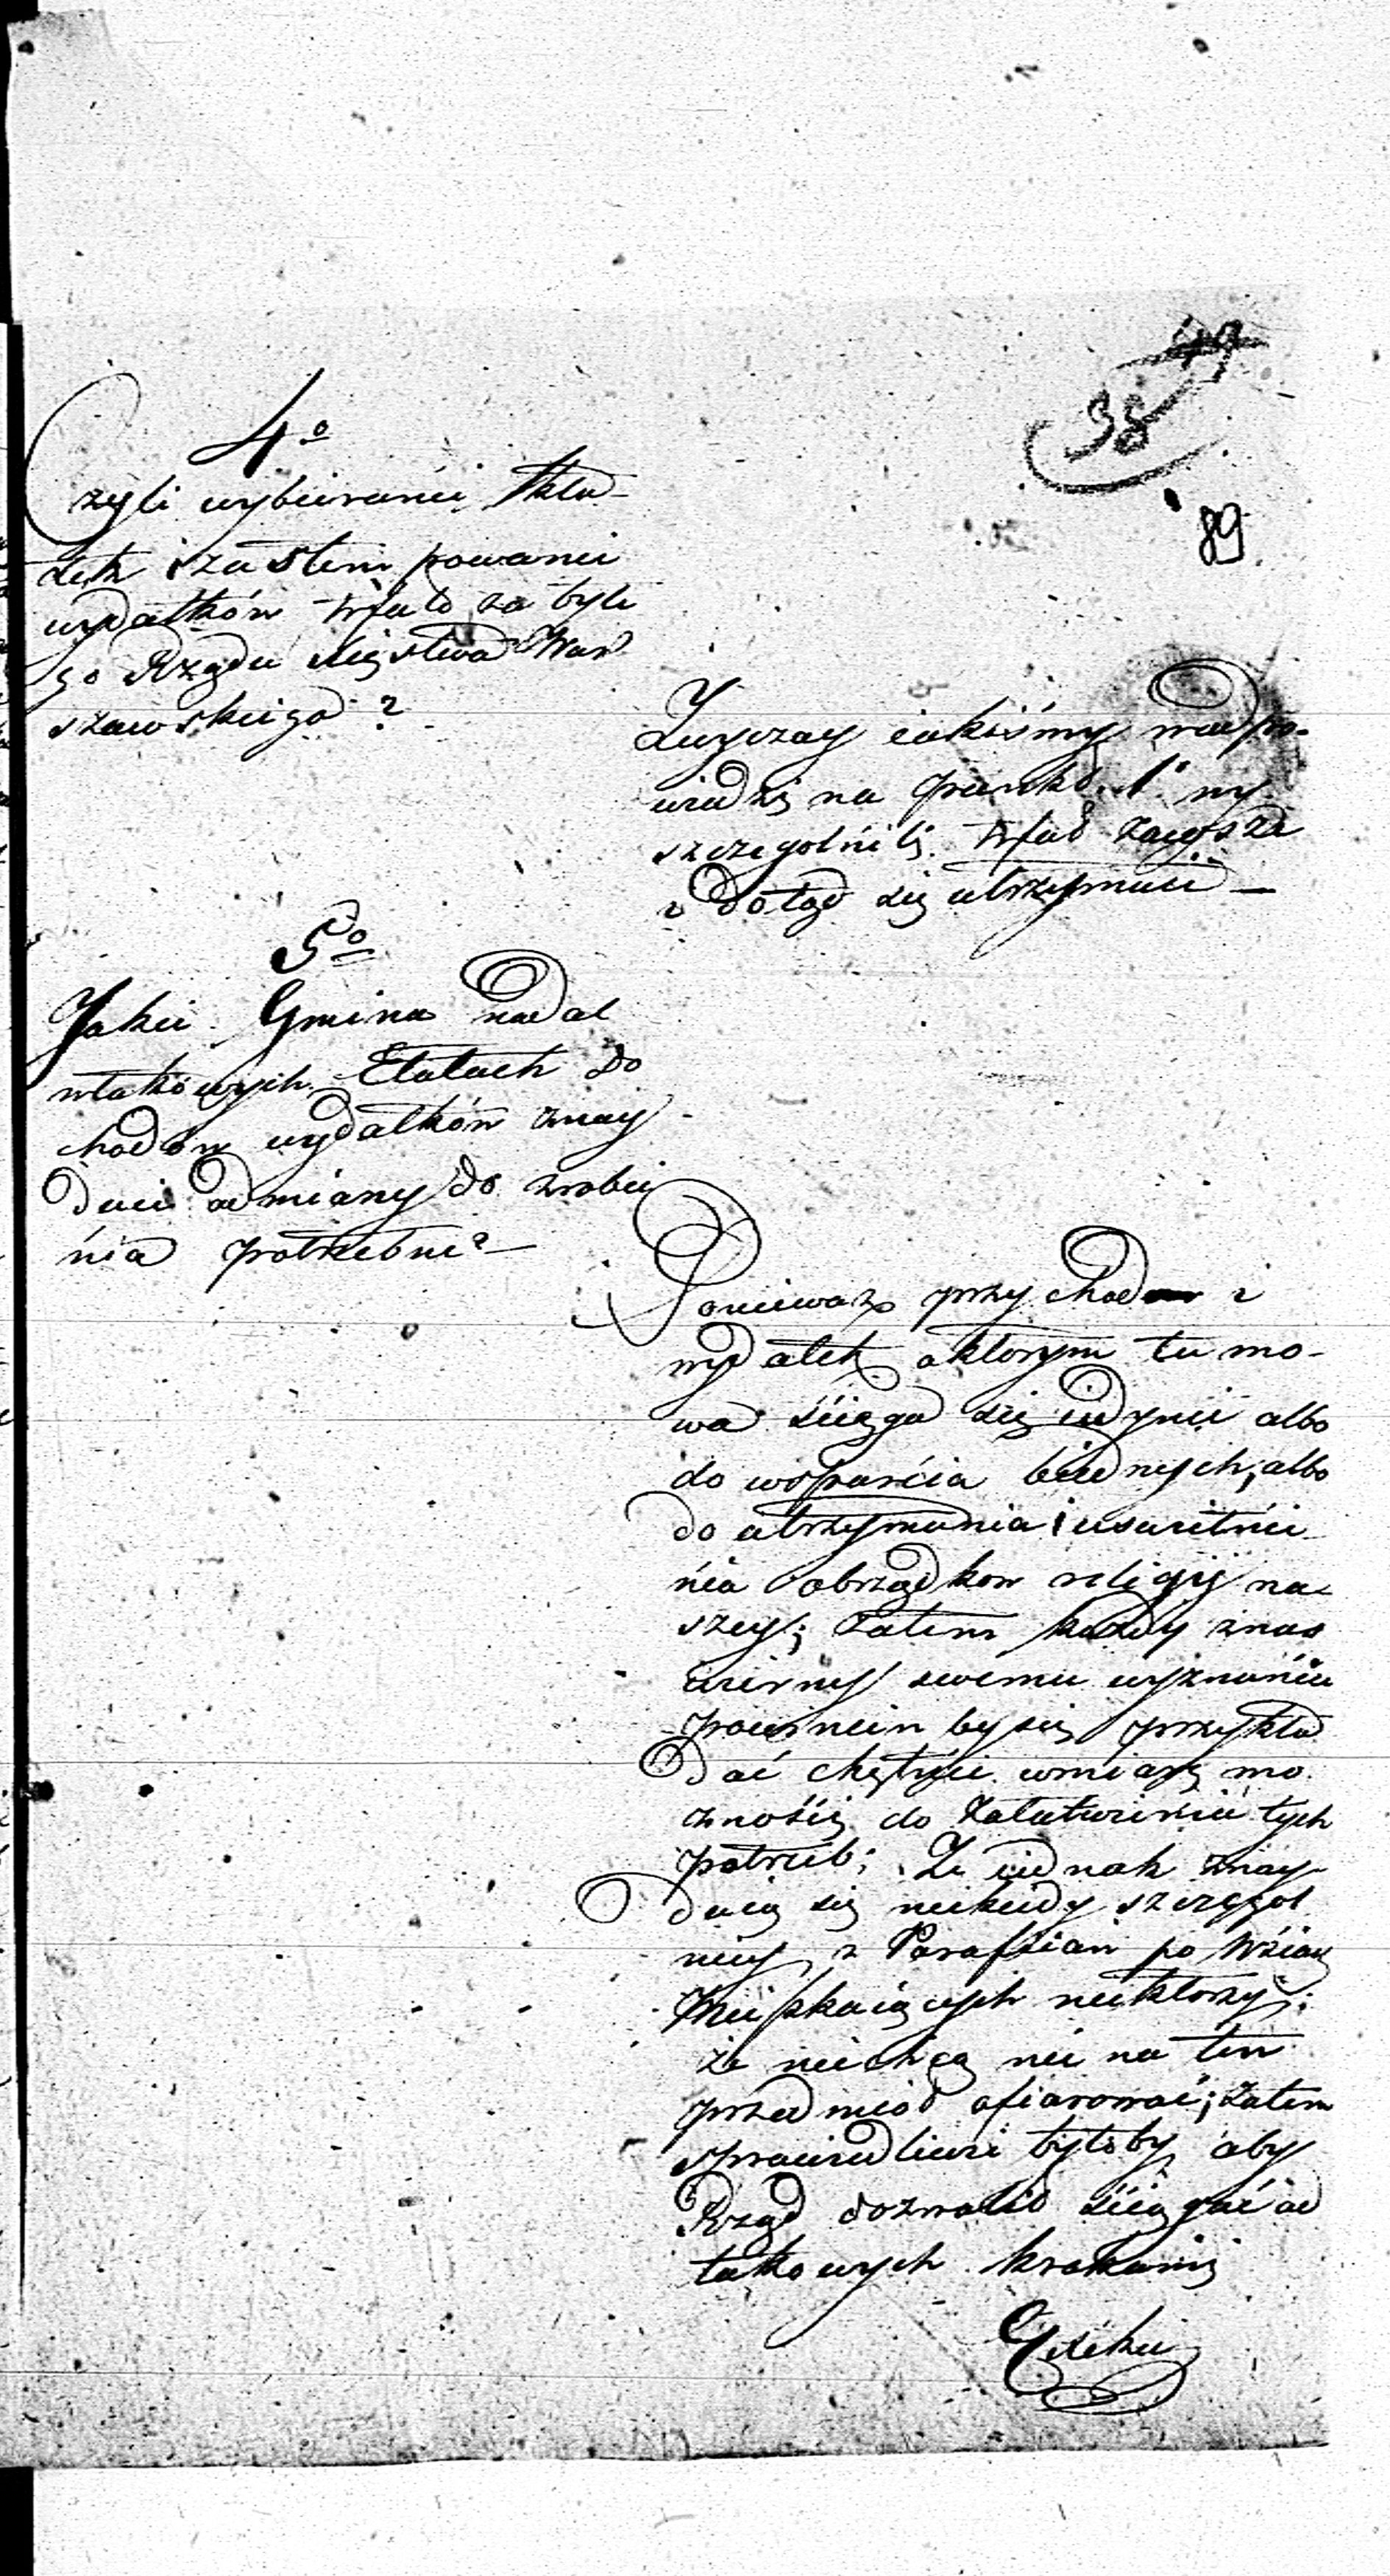 49
38
89
4º
Czyli wybieranie skła-
dek i zastempowanie
wydatków trwało za byłe
go Rządu Xięstwa War
szawskiego?
Zwyczay iakiśmy w odpo-
wiedzi na punkt 1. wy
szczegolnili trwał zawsze
i dotąd się utrzymuie —
5º
Jakie Gmina nadal
w takowych Etatach do
chodów wydatków znay
duie odmiany do zrobie
nia potrzebne? —
Ponieważ przychod i
wydatek o ktorym tu mo-
wa ściąga się iedynie albo
do wsparcia biednych, albo
do utrzymania i uświetnie
nia obrządkow religij na
szey; zatem każdy z nas
wierny swemu wyznaniu
powinien by się przykła
dać chętnie w miarę mo
żności do załatwienia tych
potrzeb; Że iednak znay-
duią się niekiedy szczegol
niey z Parafian po wsiach
Mieszkaiących niektorzy;
że nie chcą nic na ten
przedmiot ofiarować; zatem
sprawiedliwie byłoby, aby
Rząd dozwolił ściągać od
takowych krokami